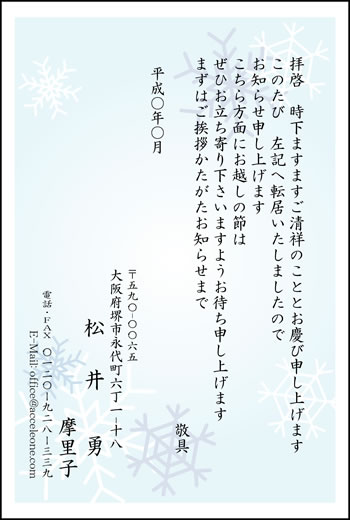 拝啓　時下ますますご清祥のこととお慶び申し上げます
このたび　左記へ転居いたしましたので
お知らせ申し上げます
こちら方面にお越しの節は
ぜひお立ち寄り下さいますようお待ち申し上げます
まずはご挨拶かたがたお知らせまで
敬具
平成〇年〇月
〒五九〇-〇〇六五
大阪府堺市永代町六丁一ー十八
松井　勇
摩里子
電話・FAX　〇一二〇ー九二八ー三三九
E-Mail: office@acceleone.com